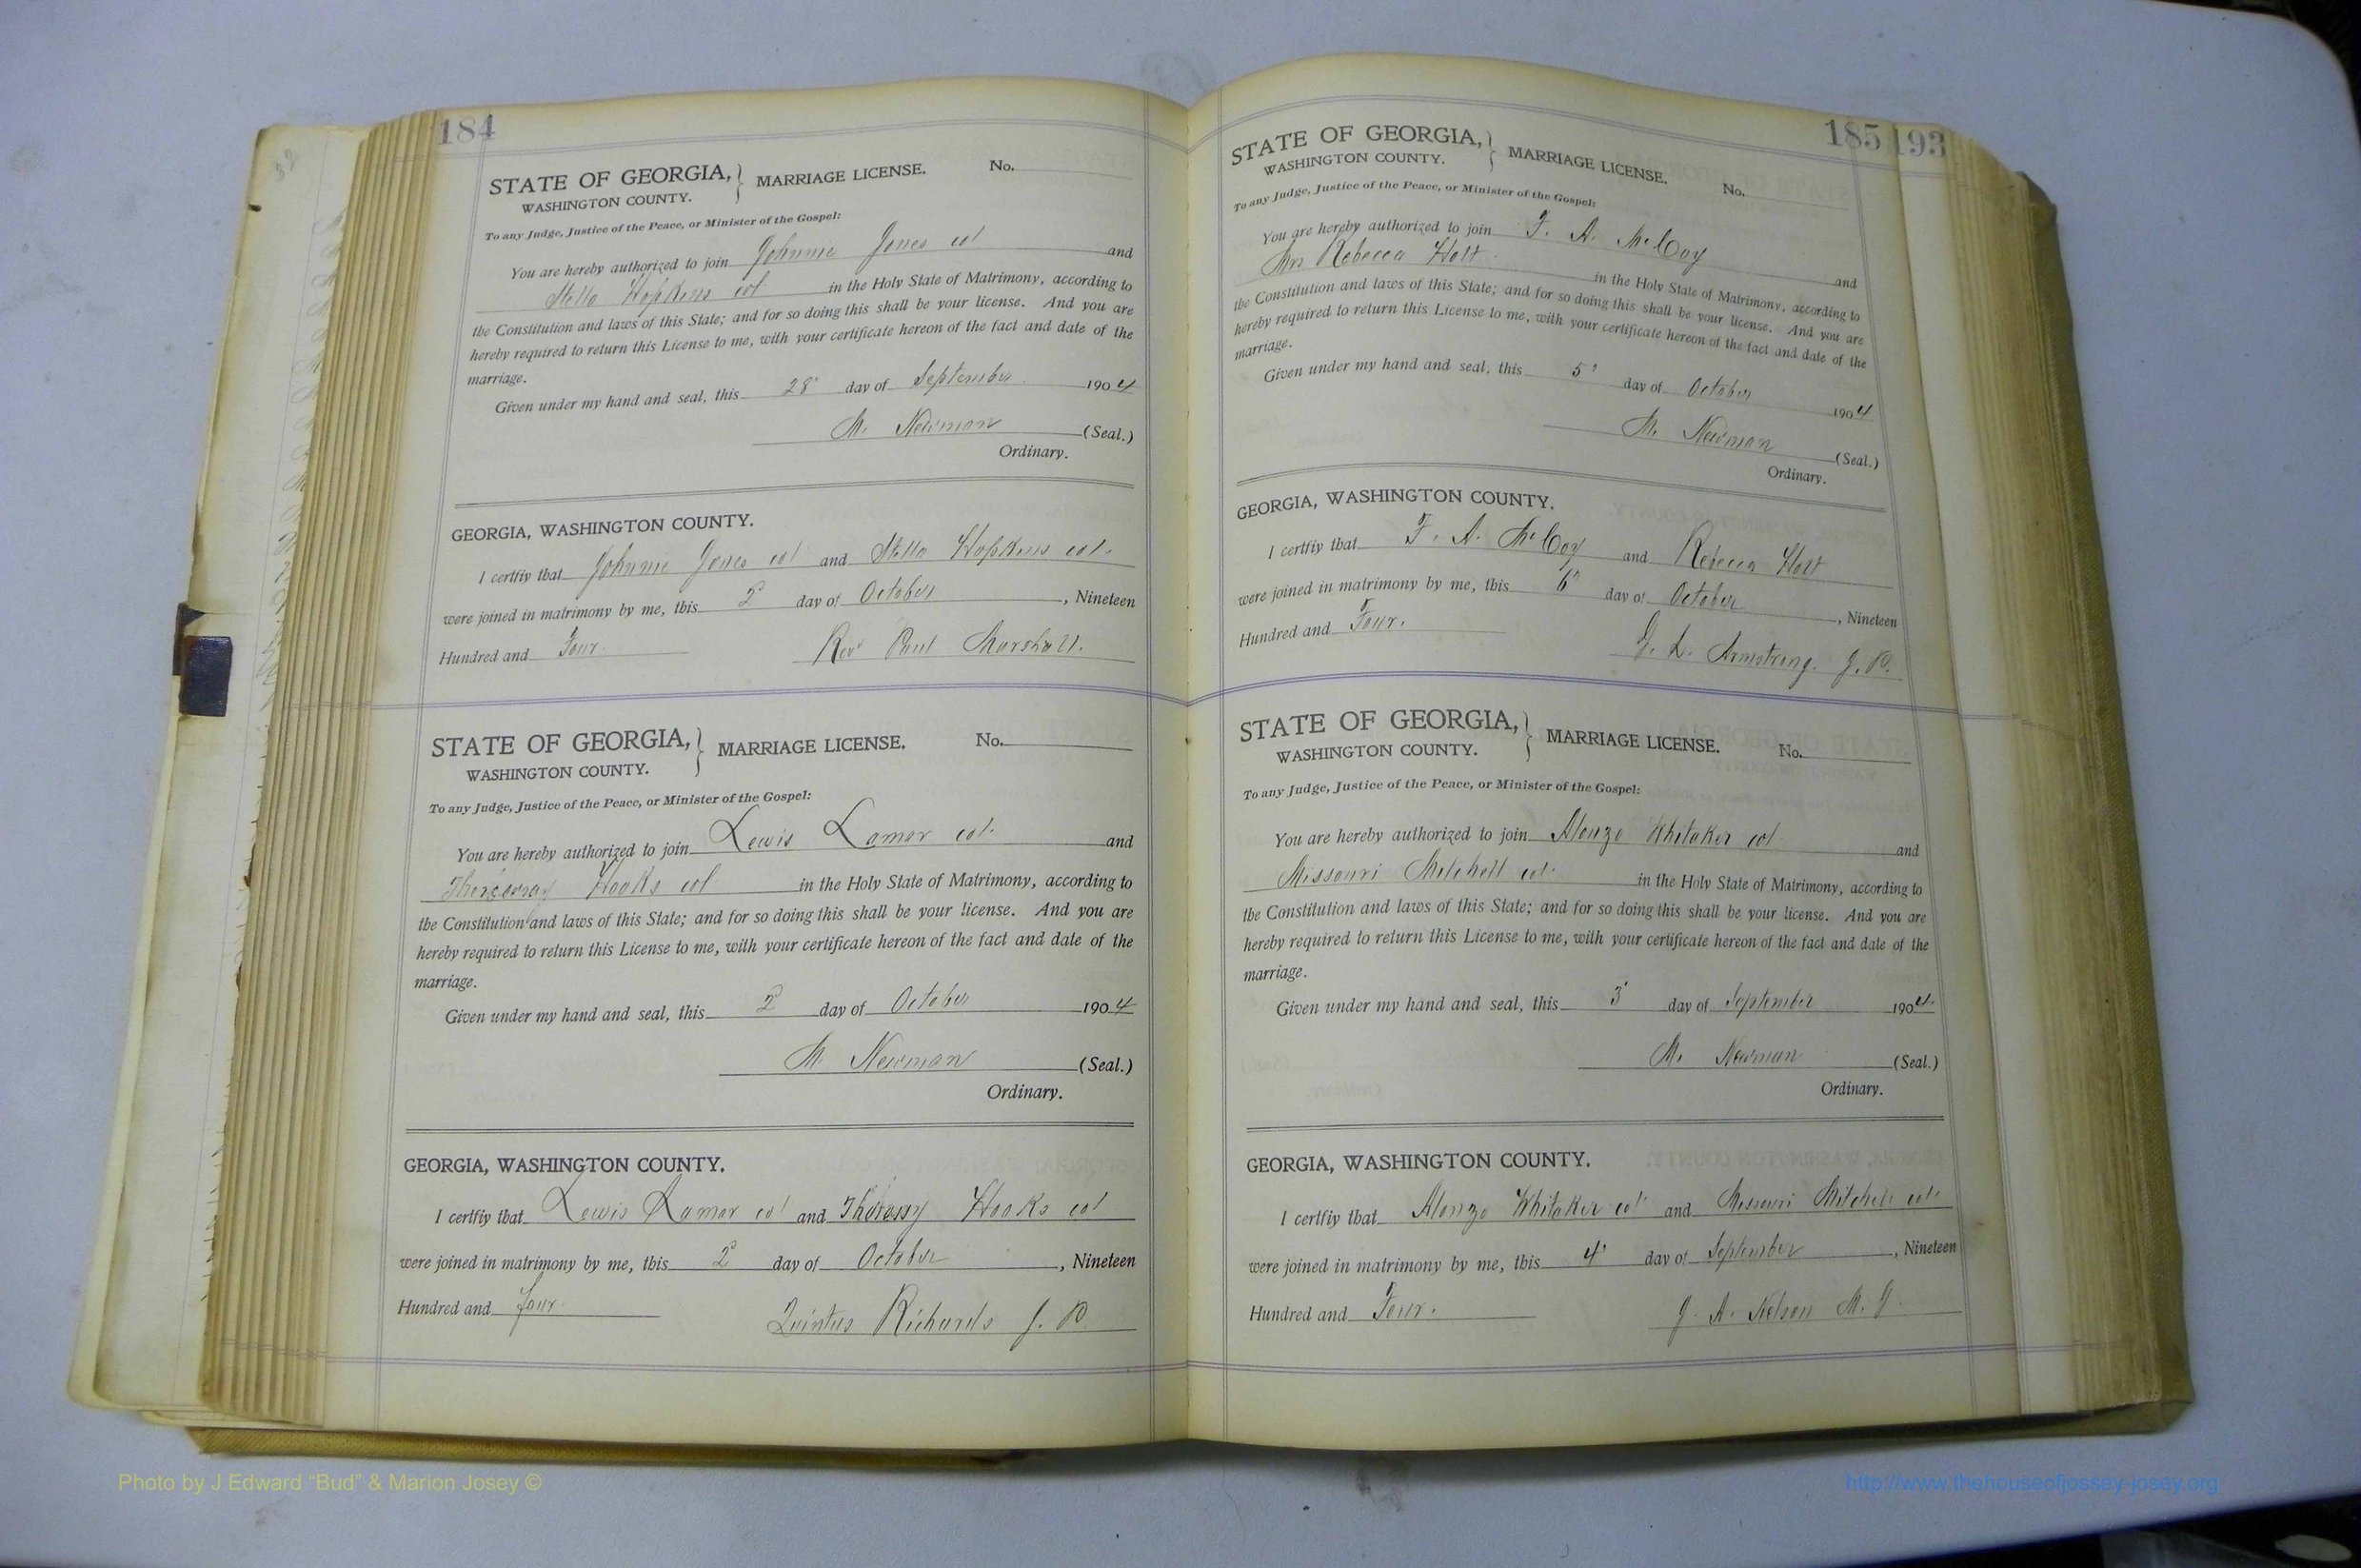 184
STATE OF GEORGIA, } MARRIAGE LICENSE. No.
WASHINGTON COUNTY.
To any Judge, Justice of the Peace, or Minister of the Gospel:
You are hereby authorized to join Johnnie Jones col and
Stella Hopkins col in the Holy State of Matrimony, according to
the Constitution and laws of this State; and for so doing this shall be your license. And you are
hereby required to return this License to me, with your certificate hereon of the fact and date of the
marriage.
Given under my hand and seal, this 28" day of September 1904
M. Newman (Seal.)
Ordinary.
GEORGIA, WASHINGTON COUNTY.
I certfiy that Johnnie Jones col and Stella Hopkins col.
were joined in matrimony by me, this 2 day of October, Nineteen
Hundred and Four.
Rev Paul Marshall.
STATE OF GEORGIA, } MARRIAGE LICENSE. No.
WASHINGTON COUNTY.
To any Judge, Justice of the Peace, or Minister of the Gospel:
You are hereby authorized to join Lewis Lamar col. and
Hooks col in the Holy State of Matrimony, according to
the Constitution and laws of this State; and for so doing this shall be your license. And you are
hereby required to return this License to me, with your certificate hereon of the fact and date of the
marriage.
Given under my hand and seal, this 2 day of October 1904
M. Newman (Seal.)
Ordinary.
GEORGIA, WASHINGTON COUNTY.
I certfiy that Lewis Lamar col and Hooks col
were joined in matrimony by me, this 2 day of October, Nineteen
Hundred and four.
Quintus Richards J. P.
185 193
STATE OF GEORGIA, } MARRIAGE LICENSE. No.
WASHINGTON COUNTY.
To any Judge, Justice of the Peace, or Minister of the Gospel:
You are hereby authorized to join F. A. McCoy and
Mrs Rebecca Holt in the Holy State of Matrimony, according to
the Constitution and laws of this State; and for so doing this shall be your license. And you are
hereby required to return this License to me, with your certificate hereon of the fact and date of the
marriage.
Given under my hand and seal, this 5' day of October 1904
M. Newman (Seal.)
Ordinary.
GEORGIA, WASHINGTON COUNTY.
I certfiy that F. A. McCoy and Rebecca Holt
were joined in matrimony by me, this 6" day of October, Nineteen
Hundred and Four.
G. L. Armstrong. J. P.
STATE OF GEORGIA, } MARRIAGE LICENSE. No.
WASHINGTON COUNTY.
To any Judge, Justice of the Peace, or Minister of the Gospel:
You are hereby authorized to join Alonzo Whitaker col and
Missouri Mitchell col. in the Holy State of Matrimony, according to
the Constitution and laws of this State; and for so doing this shall be your license. And you are
hereby required to return this License to me, with your certificate hereon of the fact and date of the
marriage.
Given under my hand and seal, this 3' day of September 1904.
M. Newman (Seal.)
Ordinary.
GEORGIA, WASHINGTON COUNTY.
I certfiy that Alonzo Whitaker col and Missouri Mitchell col.
were joined in matrimony by me, this 4' day of September, Nineteen
Hundred and Four.
J. A. Nelson M. G.
Photo by J Edward “Bud” & Marion Josey ©
http://www.thehouseofjossey-josey.org